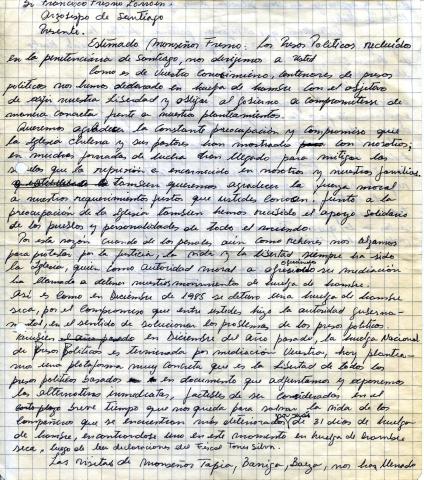 Sr Francisco Fresno Larraín.
Arzobispo de Santiago
Presente.
Estimado Monseñor Fresno: Los Presos Políticos recluidos
en la penitenciaria de Santiago, nos dirijimos a Usted
Como es de vuestro conocimiento, centenares de presos
politicos nos hemos declarado en huelga de hambre con el objetivo
de exijir nuestra libertad y obligar al gobierno a comprometerse de
manera concreta frente a nuestros planteamientos.
Queremos agradecer la constante preocupación y compromiso que
la Iglesia Chilena y sus pastores han mostrado con nosotros;
en muchas jornadas de lucha han llegado para mitigar los
que la represión a encarnado en nosotros y nuestros familiares.
tambien queremos agradecer la fuerza moral
a nuestros requerimientos justos que ustedes conocen, junto a la
preocupación de la Iglesia tambien hemos recibido el apoyo solidario
de los pueblos y personalidades de todo el mundo.
Por esta razón cuando de los penales, aún como rehenes nos alzamos
para protestar por la justicia, la vida y la libertad siempre ha sido
la Iglesia, quien como autoridad moral a ofrecido su mediación
ha llamado a detener nuestros movimientos de huelga de hambre.
Así es como en Diciembre de 1985 se detuvo una huelga de hambre
seca, por el compromiso que entre ustedes hizo la autoridad guberna-
mental, en el sentido de solucionar los problemas de los presos políticos.
en Diciembre del año pasado, la huelga Nacional
de presos Políticos es terminada por mediación vuestra, hoy plantea-
mos una plataforma muy concreta que es la libertad de todos los
presos politicos basados en documento que adjuntamos y exponemos
las alternativas inmediatas, factibles de ser consideradas en el
breve tiempo que nos queda para salvar la vida de los
compañeros que se encuentran más deteriorados, de 31 dias de huelga
de hambre, encontrandose uno en este momento en huelga de hambre
seca, luego de las declaraciones del Fiscal Torres Silva.
Las visitas de monseñor Tapia, Baeza, nos han llenado